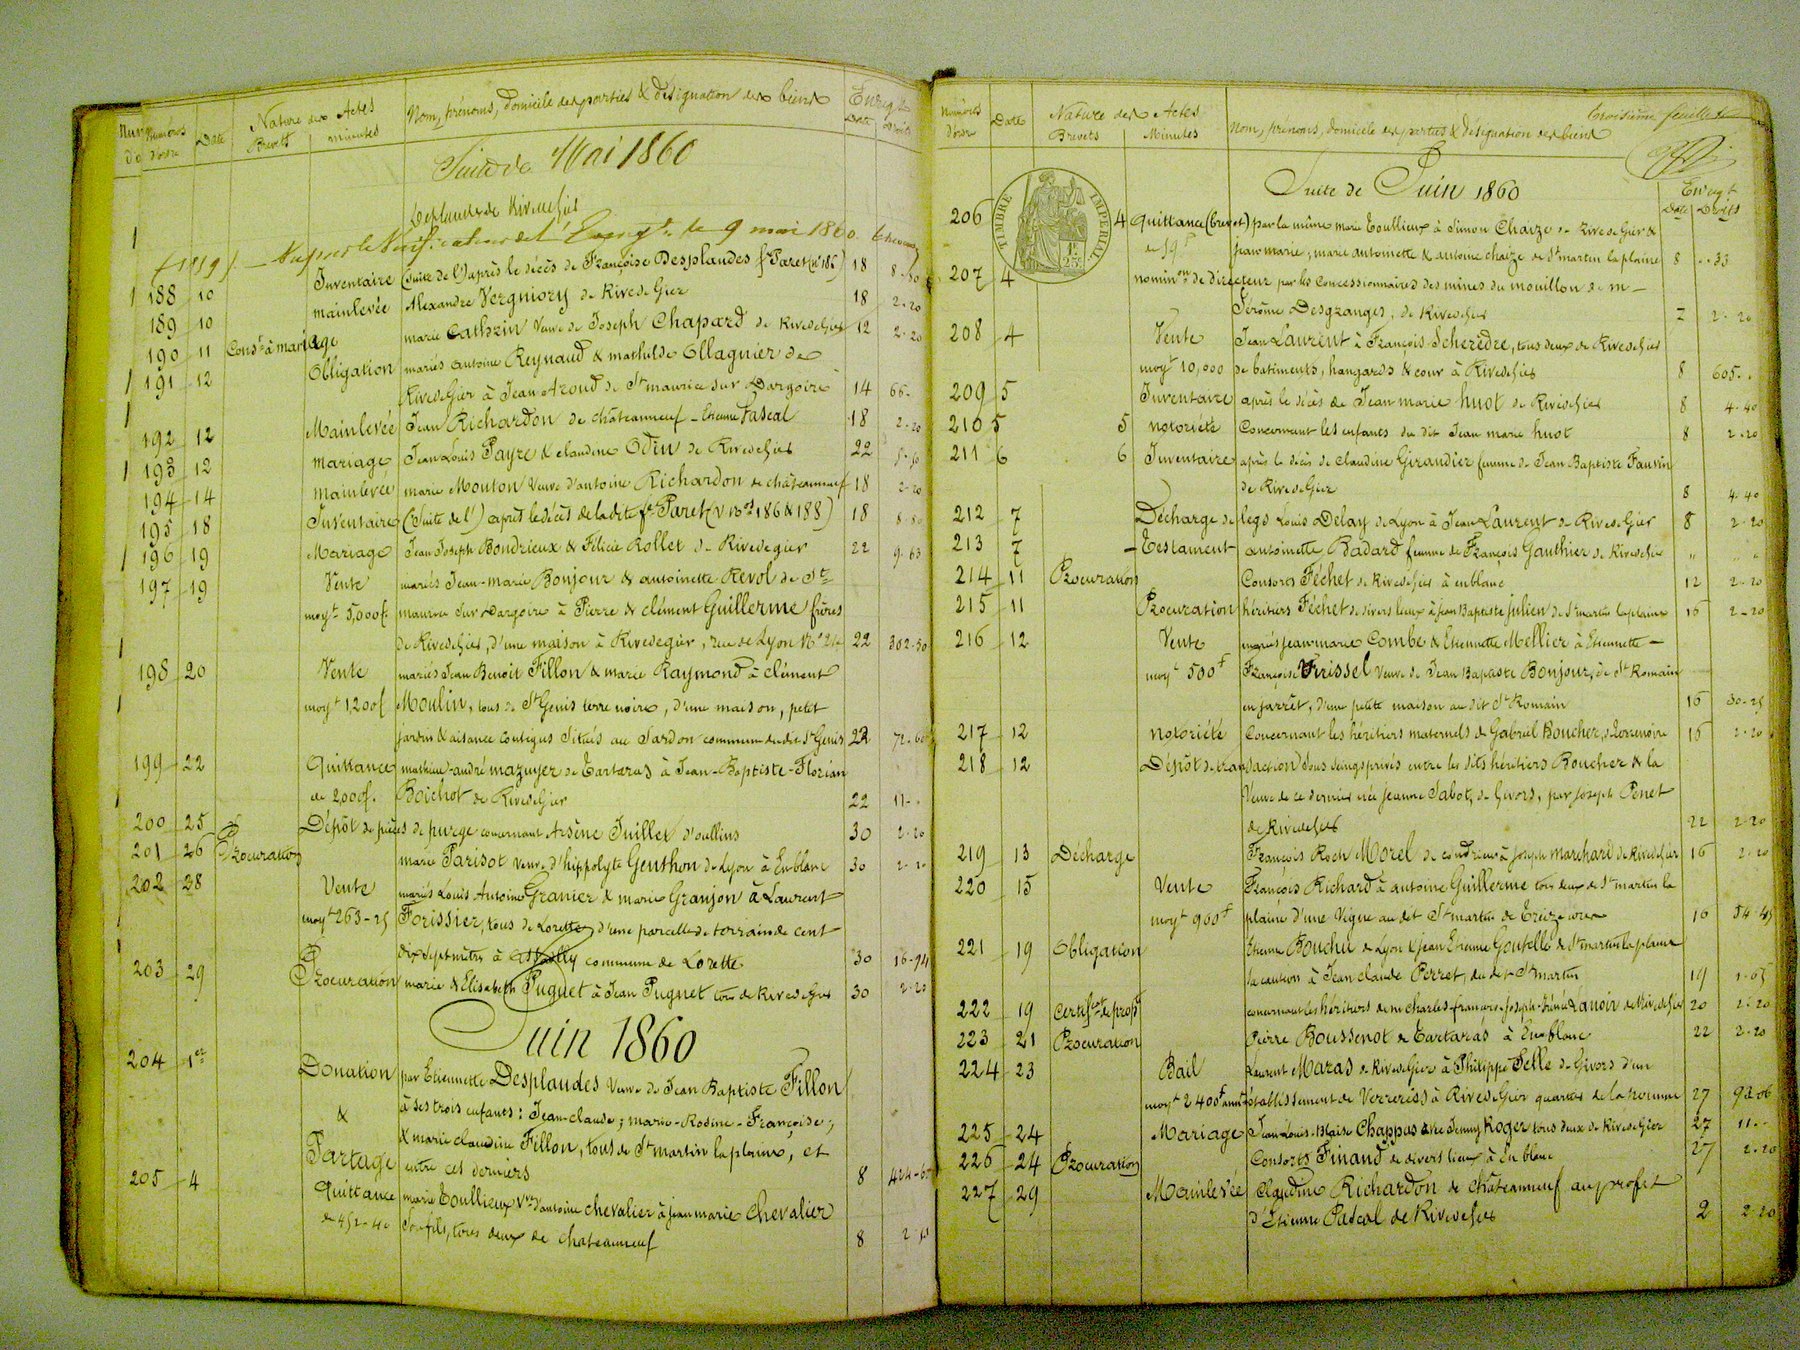 Numéros d'ordre Date Nature des Actes Brevets minutes Nom, prénoms, domicile des parties & désignation des biens Enregt Date Droits
Suite de Mai 1860
188 10 Inventaire (suite de l') après le décès de Françoise Desplaudes fe Paret (no 186) 18 8-80
189 10 mainlevée Alexandre Vergniory de Rivedegier 18 2-20
190 11 Const. à mariage marie Cathrin veuve de Joseph Chapard de Rivedegier 12 2-20
191 12 Obligation mariés antoine Reynaud & mathilde Ollagnier de
Rivedegier à Jean Aroud de St maurice sur Dargoire 14 66-
192 12 Mainlevée Jean Richardon de châteauneuf - Etienne Pascal 18 2-20
193 12 mariage Jean Louis Payre & claudine Odin de Rivedegier 22
194 14 mainlevée marie Mouton veuve d'antoine Richardon de châteauneuf 18 2-20
195 18 Inventaire (suite de l') après le décès de la dite fe Paret (v. nos 186 & 188) 18 8-80
196 19 Mariage Jean Joseph Bondrieux & Félicie Rollet de Rivedegier 22 9-63
197 19 Vente mariés Jean-marie Bonjour & antoinette Revol de St
moyt 5,000f. maurice sur Dargoire à Pierre & clément Guillerme frères
de Rivedegier, d'une maison à Rivedegier, rue de Lyon 22 302-50
198 20 Vente mariés Jean Benoit Fillon & marie Raymond à clément
moyt 1,200f Moulin, tous de St Genis terre noire, d'une maison, petit
jardin & aisance contigus situés au Sardon commune du dit St Genis 22
199 22 Quittance mathieu-andré mazuyer de Tartaras à Jean-Baptiste-Florian
de 2,000f. Boichot de Rivedegier 22 11-
200 25 Dépôt de pièces de purge concernant Arsène Juillet d'oullins 30 2-20
201 26 Procuration marie Parisot veuve d'hippolyte Genthon de Lyon à Enblanc 30 2-20
202 28 Vente mariés Louis Antoine Granier & marie Granjon à Laurent
moyt 263-25 Forissier, tous de Lorette, d'une parcelle de terrain de cent
dix sept mètres à commune de Lorette 30 16-94
203 29 Procuration marie & Elisabeth Puguet à Jean Puguet tous de Rivedegier 30 2-20
Juin 1860
204 1er Donation par Etiennette Desplaudes veuve de Jean Baptiste Fillon
& à ses trois enfants: Jean-claude; marie-Rosine-Françoise;
& marie claudine Fillon, tous de St martin la plaine, et
Partage entre ces derniers 8
205 4 Quittance marie Toullieux Vve d'antoine chevalier à jean marie chevalier
son fils, tous deux de chateauneuf 8
Numéros d'ordre Date Nature des Actes Brevets Minutes Nom, prénoms, domicile des parties & désignation des biens
troisième feuillet
Suite de Juin 1860 Enregt Date Droits
TIMBRE IMPERIAL
206 4 quittance (brevet) par la même marie Toullieux à Simon Chaize de Rive de Gier &
Jean marie, marie antoinette & antoine chaize de St martin la plaine 8
207 4 nominon de directeur par les Concessionnaires des mines du mouillon de m-
Jérôme Desgranges, de Rivedegier 2-20
208 4 Vente Jean Laurent à François Scherèdre, tous deux de Rivedegier
moyt 10,000 de batiments, hangards & cour à Rivedegier 8 605
209 5 Inventaire après le décès de Jean marie huot de Rivedegier 8 4-40
210 5 5 notoriété Concernant les enfants du dit Jean marie huot 8 2-20
211 6 6 Inventaire après le décès de claudine Girandier femme de Jean Baptiste Fauvin
de Rivedegier 8 4-40
212 7 Décharge de legs Louis Delay de Lyon à Jean Laurent de Rivedegier 8 2-20
213 7 Testament antoinette Badard femme de François Gauthier de Rivedegier " "
214 11 Procuration Consorts Féchet de Rivedegier à enblanc 12 2-20
215 11 Procuration héritiers Féchet de divers lieux à Jean Baptiste julien de St martin laplaine 16 2-20
216 12 Vente mariés jean marie Combe & Etiennette Mellier à Etiennette -
moyt 500f Françoise Virissel veuve de Jean Baptiste Bonjour, de St Romain
en jarrêt, d'une petite maison au dit St Romain 16 30-25
217 12 notoriété Concernant les héritiers maternels de Gabriel Boucher, de Terrenoire 16 2-20
218 12 Dépôt de transaction sous seings privés entre les dits héritiers Boucher & la
Veuve de ce dernier née Jeanne Sabot, de Givors, par Joseph Penet
de Rivedegier 22 2-20
219 13 Décharge François Roch Morel de condrieux à joseph marchard de Rivedegier 16 2-20
220 15 Vente François Richard à antoine Guillerme tous deux de St martin la
moyt 960f plaine d'une Vigne au dit St martin de treize ares 16
221 19 Obligation Etienne Bouchu de Lyon & Jean Etienne Goutelle de St martin la plaine
sa caution à Jean claude Perret, du dit St martin 19 1-65
222 19 Certifcat de propt concernant les héritiers de mr charles françois-joseph Lanoir de Rivedegier 20 2-20
223 21 Procuration Pierre Boussenot de Tartaras à Enblanc 22 2-20
224 23 Bail Laurent Maras de Rivedegier à Philippe Selle de Givors d'un
moyt 2400f annt établissement de Verreries à Rivedegier quartier de la 27
225 24 Mariage Jean Louis-Blaise Chappas avec Jenny Roger tous deux de Rivedegier 27 11-
226 24 Procuration Consorts Finand de divers lieux à Enblanc 27 2-20
227 29 Mainlevée Claudine Richardon de châteauneuf au profit
d'Etienne Pascal de Rivedegier 2 2-20